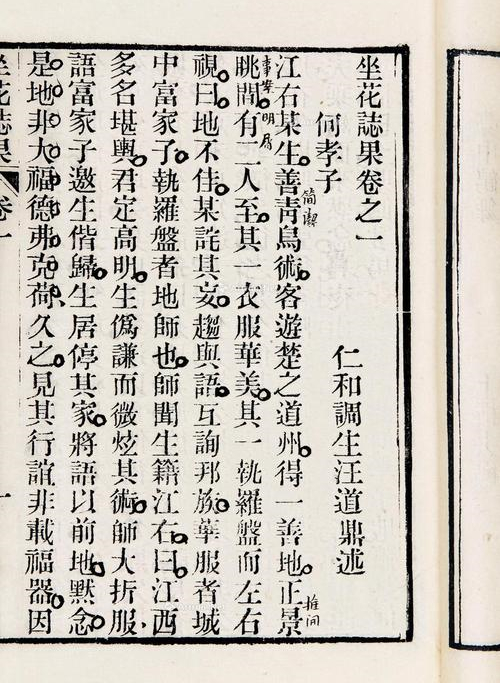 坐花誌果卷之一
仁和調生汪道鼎述
何孝子
江右某生善靑烏術客遊楚之道州得一善地正景
简潔
眺間有二人至其一衣服華美其一執羅盤而左右
視曰地不佳某詫其妄趨與語互詢邦族華服者城
中富家子執羅盤者地師也師聞生籍江右曰江西
多名堪輿君定高明生僞謙而微炫其術師大折服
語富家子邀生偕歸生居停其家將語以前地默念
是地非大福德弗克荷久之見其行誼非載福器因
坐花誌果
卷一
一